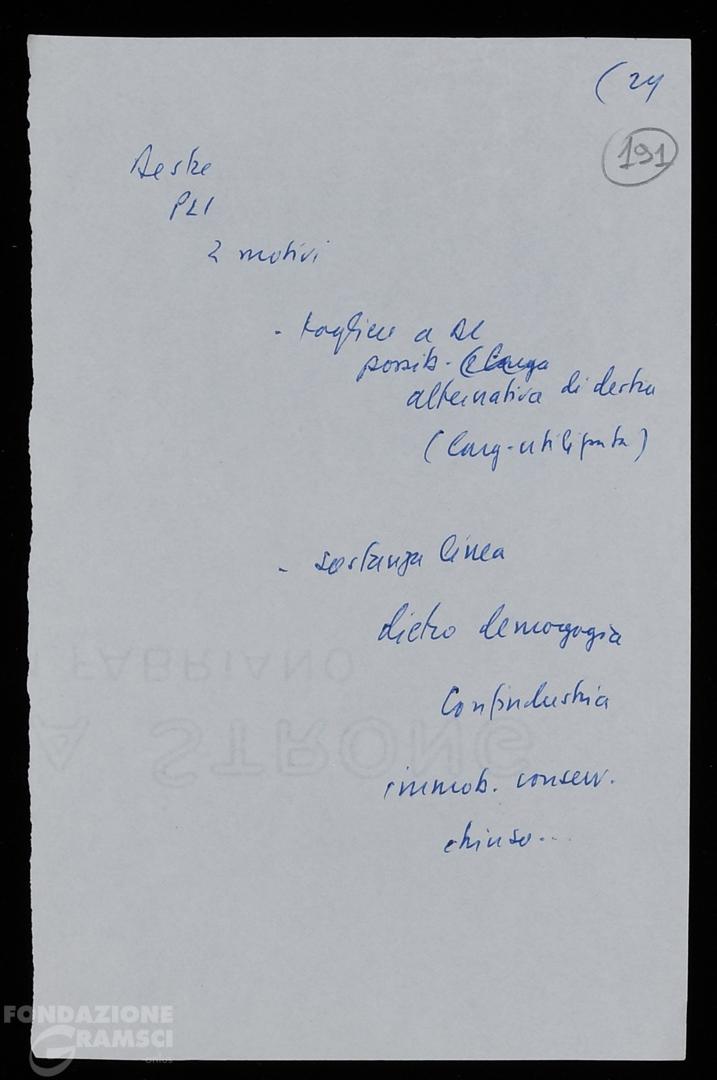 (24
191
Destre
PLI
2 motivi
- togliere a DC
possib.
alternativa di destra
(larg. utilizzata)
- sostanza linea
dietro demagogia
Confindustria
immob. conserv.
chiuso...
FABRIANO
A STRONG
FONDAZIONE
GRAMSCI
onlus